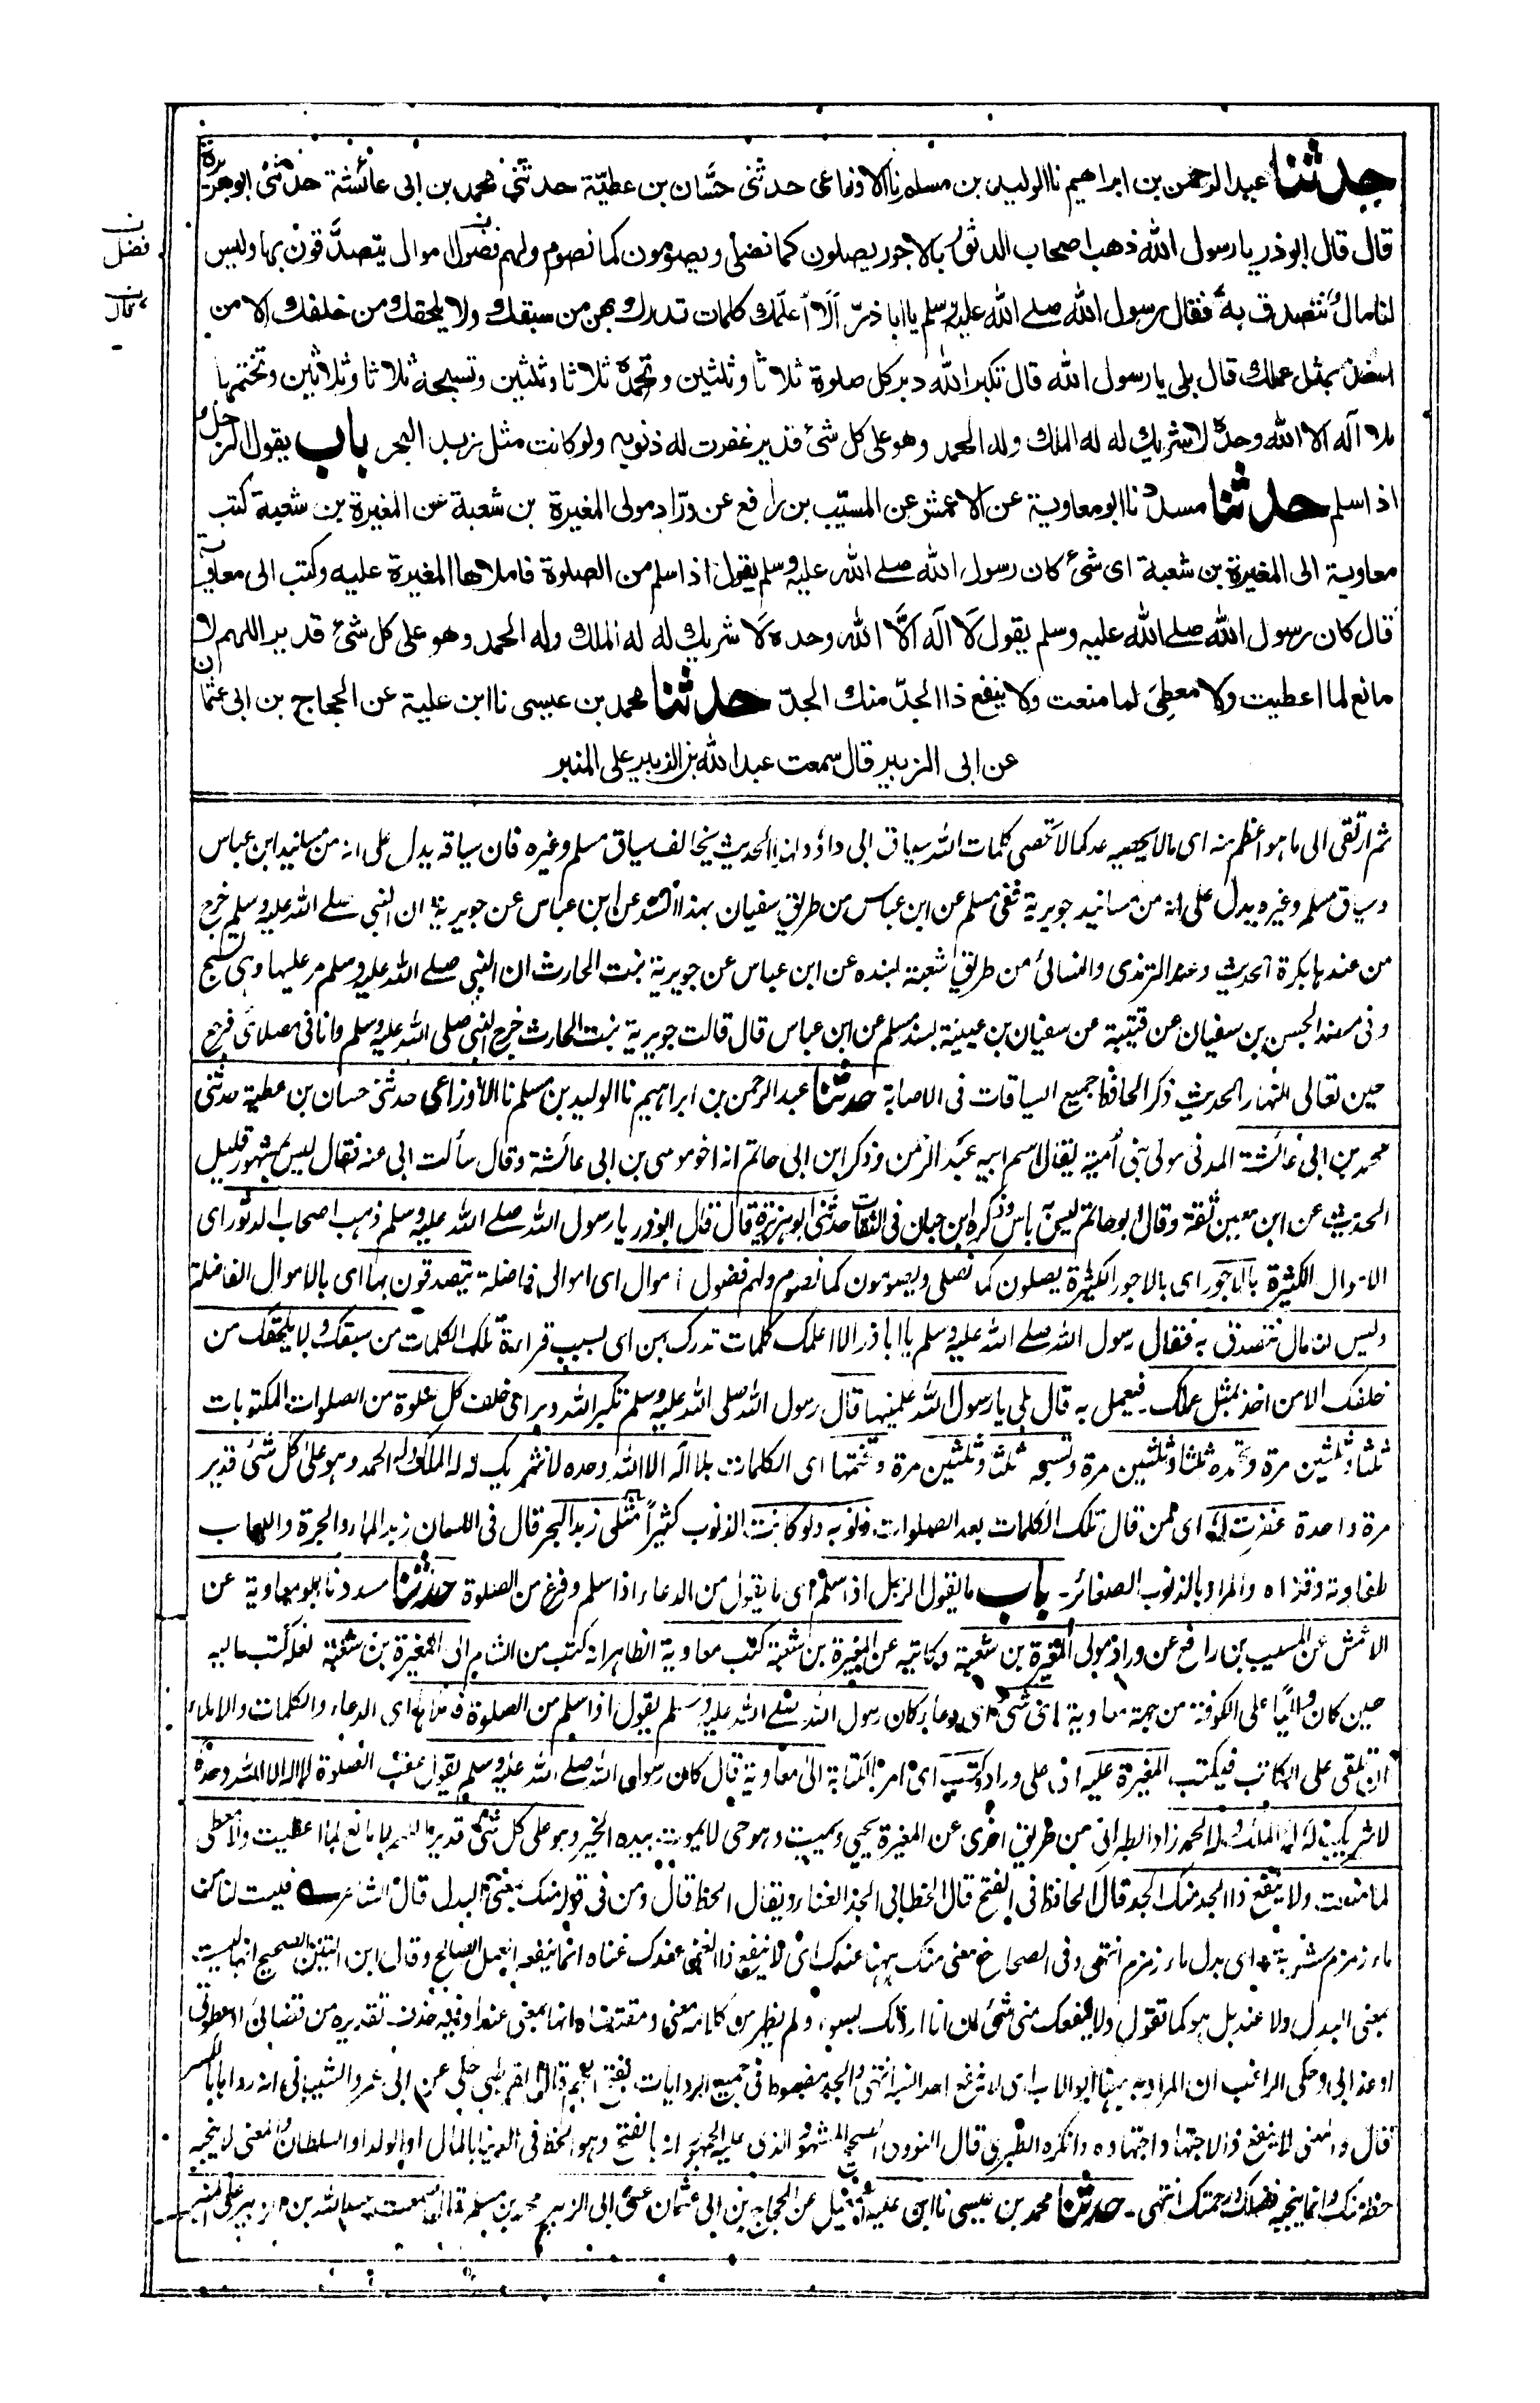 حدثنا عبد الرحمن بن ابراهيم نا الوليد بن مسلم نا الاوزاعى حدثنى حسّان بن عطيّة حدثنى محمد بن ابى عائشة حدثنى ابو هريرة
قال قال ابو ذر يا رسول الله ذهب اصحاب الدثور بالاجور يصلون كما نصلى ويصومون كما نصوم ولهم فضول اموال يتصدّقون بها وليس
فضل
لنا مال نتصدق به فقال رسول الله صلے الله عليه وسلم يا ابا ذرّ اَلَا اُعلّمك كلمات تدرك بهن من سبقك ولا يلحقك من خلفك الا من
قال
اخذ بمثل عملك قال بلى يا رسول الله قال تكبر الله دبر كل صلوة ثلاثا وثلثين وتحمده ثلاثا وثلثين وتسبحه ثلاثا وثلاثين وتختمها
بلا آله الا الله وحده لا شريك له له الملك وله الحمد وهو على كل شئ قدير غفرت له ذنوبه ولو كانت مثل زبد البحر باب يقول الرجل
اذا سلم حدثنا مسدد نا ابو معاوية عن الاعمش عن المسيّب بن رافع عن ورّاد مولى المغيرة بن شعبة عن المغيرة بن شعبة كتب
معاوية الى المغيرة بن شعبة اى شئ كان رسول الله صلے الله عليه وسلم يقول اذا سلم من الصلوة فاملاها المغيرة عليه وكتب الى معاوية
قال كان رسول الله صلے الله عليه وسلم يقول لَا آله الَّا الله وحده لَا شريك له له الملك وله الحمد وهو على كل شئ قدير اللهم لا
مانع لما اعطيت ولا معطِىَ لما منعت ولا ينفع ذا الجدّ منك الجدّ حدثنا محمد بن عيسى نا ابن علية عن الحجاج بن ابى عثمان
عن ابى الزبير قال سمعت عبد الله بن الزبير على المنبر
ثم ارتقى الى ما هو اعظم منه اى ما لا يحصيه عد كما لا تحصى كلمات الله سياق ابى داؤد لهذا الحديث يخالف سياق مسلم وغيره فان سياقه يدل على انه من مسانيد ابن عباس
وسياق مسلم وغيره يدل على انه من مسانيد جويرية ففى مسلم عن ابن عباس من طريق سفيان بهذا السند عن ابن عباس عن جويرية ان النبى صلے الله عليه وسلم خرج
من عندها بكرة الحديث وعند الترمذى والنسائى من طريق شعبة بسنده عن ابن عباس عن جويرية بنت الحارث ان النبى صلے الله عليه وسلم مر عليها وهى تسبح
وفى مسند الحسن بن سفيان عن قتيبة عن سفيان بن عيينة بسند مسلم عن ابن عباس قال قالت جويرية بنت الحارث خرج النبى صلى الله عليه وسلم وانا فى مصلائى فرجع
حين تعالى النهار الحديث ذكر الحافظ جميع السياقات فى الاصابة حدثنا عبد الرحمن بن ابراهيم نا الوليد بن مسلم نا الاوزاعى حدثنى حسان بن عطية حدثنى
محمد بن ابى عائشة المدنى مولى بنى أمية يقال اسم ابيه عبد الرحمن وذكر ابن ابى حاتم انه اخو موسى بن ابى عائشة وقال سألت ابى عنه فقال ليس بمشهور قليل
الحديث عن ابن معين ثقة وقال ابو حاتم ليس به باس وذكره ابن حبان فى الثقات حدثنى ابو هريرة قال قال ابو ذر يا رسول الله صلے الله عليه وسلم ذهب اصحاب الدثور اى
الاموال الكثيرة بالاجور اى بالاجور الكثيرة يصلون كما نصلى ويصومون كما نصوم ولهم فضول اموال اى اموالى فاضلة يتصدقون بها اى بالاموال الفاضلة
وليس لنا مال نتصدق به فقال رسول الله صلے الله عليه وسلم يا ابا ذر الا اعلمك كلمات تدرك بهن اى بسبب قراءة تلك الكلمات من سبقك ولا يلحقك من
خلفك الا من اخذ بمثل عملك فيعمل به قال بلى يا رسول الله علمنيها قال رسول الله صلى الله عليه وسلم تكبر الله دبر اى خلف كل صلوة من الصلوات المكتوبات
ثلثا وثلثين مرة وتحمده ثلثا وثلثين مرة وتسبحه ثلثا وثلثين مرة وتختمها اى الكلمات بلا اله الا الله وحده لا شريك له له الملك وله الحمد وهو على كل شئ قدير
مرة واحدة غفرت له اى لمن قال تلك الكلمات بعد الصلوات ذنوبه ولو كانت الذنوب كثيراً مثل زبد البحر قال فى اللسان زبد الماء والجرة واللعاب
طفاوته وقذاه والمراد بالذنوب الصغائر۔ باب ما يقول الرجل اذا سلم اى ما يقول من الدعاء اذا سلم وفرغ من الصلوة حدثنا مسدد نا ابو معاوية عن
الاعمش عن المسيب بن رافع عن وراد مولى المغيرة بن شعبة وكاتبه عن المغيرة بن شعبة كتب معاوية الظاهر انه كتب من الشام الى المغيرة بن شعبة لعله كتب هاليه
حين كان واليًا على الكوفة من جهة معاوية اى شئ اى دعاء كان رسول الله صلے الله عليه وسلم يقول اذا سلم من الصلوة فاملاها اى الدعاء والكلمات والاملاء
ان يلقى على الكاتب فيكتب المغيرة عليه اى على وراد وكتب اى امر بالكتابة الى معاوية قال كان رسول الله صلے الله عليه وسلم يقول عقب الصلوة لا اله الا الله وحده
لا شريك له له الملك وله الحمد زاد الطبرانى من طريق اخرى عن المغيرة يحيى ويميت وهو حى لا يموت بيده الخير وهو على كل شئ قدير اللهم لا مانع لما اعطيت ولا معطى
لما منعت ولا ينفع ذا الجد منك الجد قال الحافظ فى الفتح قال الخطابى الجد الغناء ويقال الحظ قال ومن فى قوله منك بمعنى البدل قال الشاعر فليت لنا من
ماء زمزم شربة اى بدل ماء زمزم انتهى وفى الصحاح معنى منك ههنا عندك اى لا ينفع ذا الغنى عندك غناه انما ينفعه العمل الصالح وقال ابن التين الصحيح انها ليست
بمعنى البدل ولا عند بل هو كما تقول ولا ينفعك منى شئ ان انا اردتك بسوء ولم يظهر من كلامه معنى ومقتضاه انها بمعنى عند او فيه حذف تقديره من قضائى او سطوتى
او عذابى وحكى الراغب ان المراد به ههنا ابو الاب اى لا ينفع احد انسبه انتهى والجد مضبوط فى جميع الروايات بفتح الجيم قال القرطبى حكى عن ابى عمرو الشيبانى انه رواه بالكسر
قال والمعنى لا ينفع ذا الاجتهاد اجتهاده وانكره الطبرى قال النووى الصحيح المشهور الذى عليه الجمهور انه بالفتح وهو الحظ فى الدنيا بالمال او الولد او السلطان والمعنى لا ينجيه
حظه منك وانما ينجيه فضلك ورحمتك انتهى۔ حدثنا محمد بن عيسى نا ابن علية عن الحجاج بن ابى عثمان عن ابى الزبير محمد بن مسلم قال سمعت عبد الله بن الزبير على المنبر